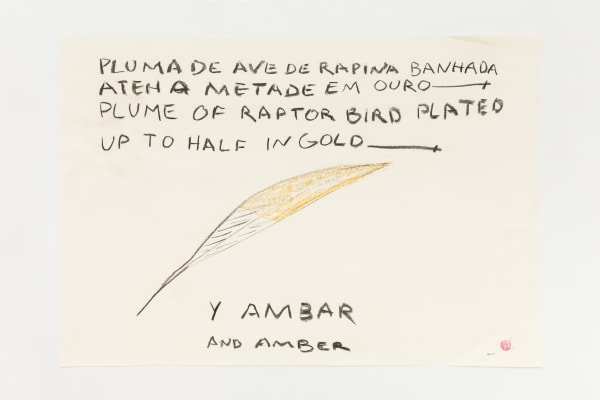 PLUMA DE AVE DE RAPINA BANHADA
ATEH A METADE EM OURO
PLUME OF RAPTOR BIRD PLATED
UP TO HALF IN GOLD
Y AMBAR
AND AMBER